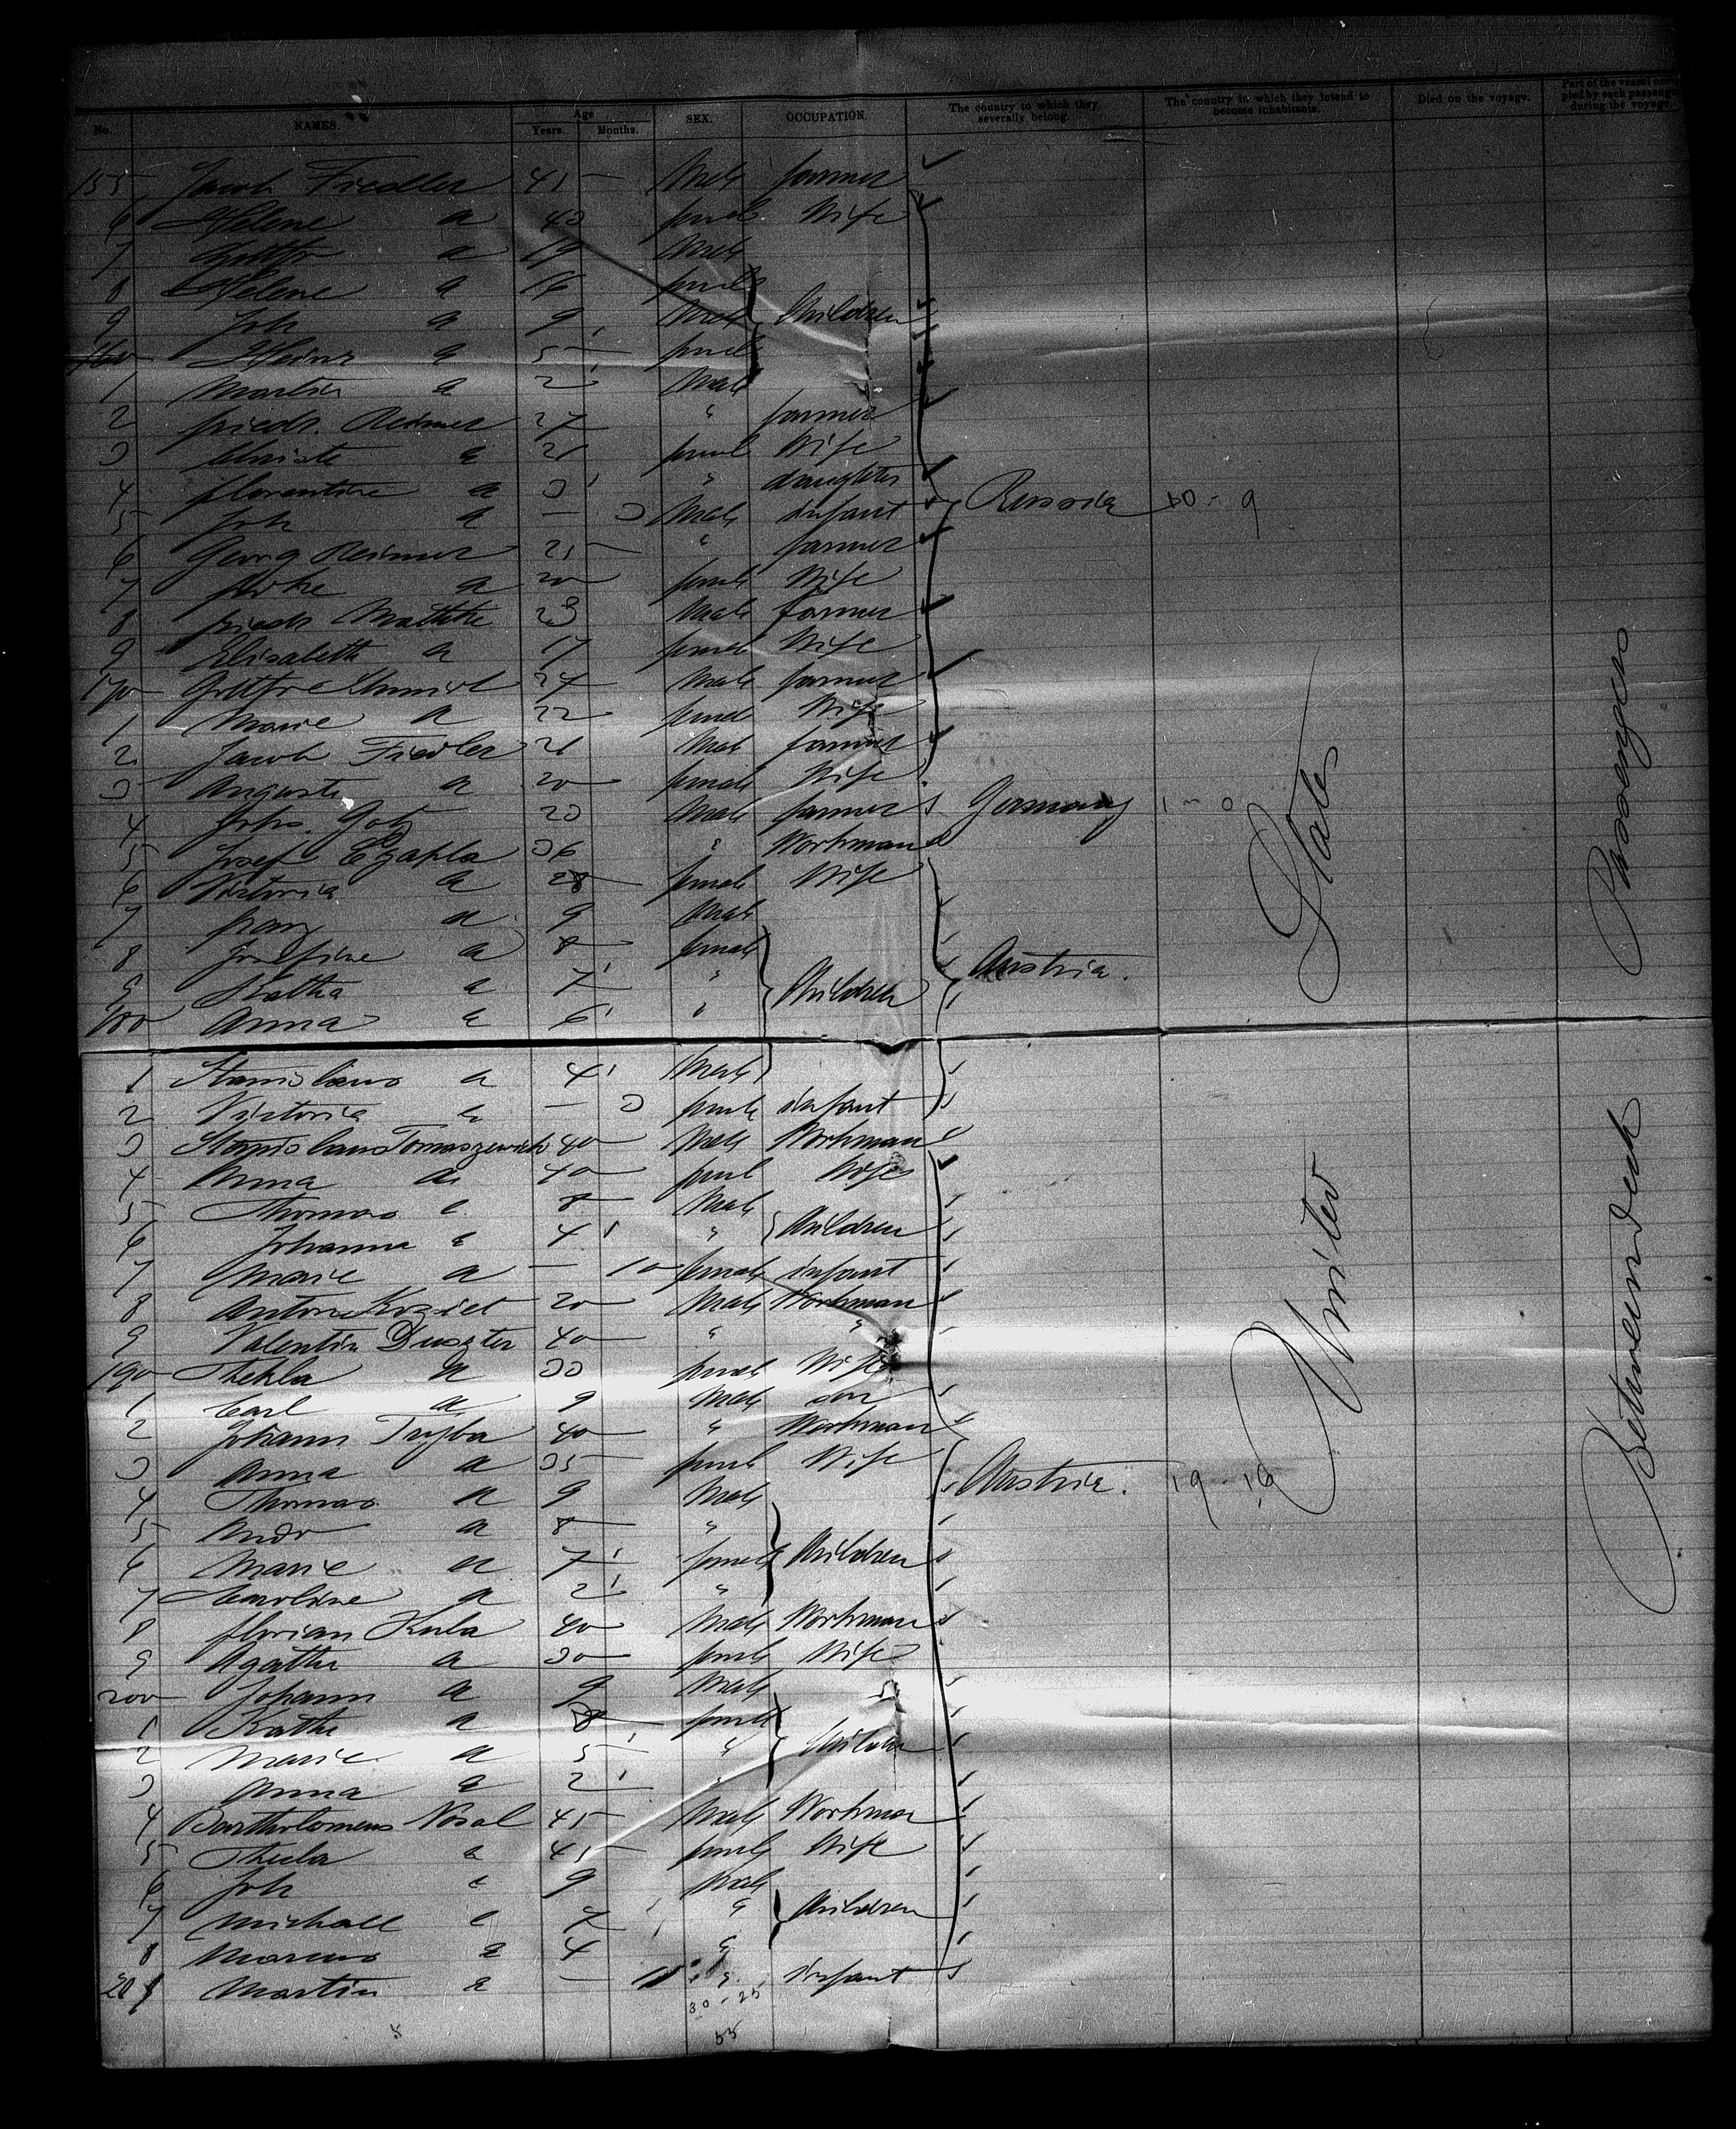 No. NAMES. Age Years. Months. SEX. OCCUPATION. The country to which they severally belong. The country in which they intend to become inhabitants. Died on the voyage. Part of the vessel occupied by each passenger during the voyage.
155 Jacob Fiedler 41 — Male farmer
6 Helene a 40 femal Wife
7 a 19 Male
8 Helene a 16 femal
9 Joh a 9 Male Children
160 a 5 femal
1 Martin a 2 Male
2 friedr. Reimer 27 " farmer
3 Christe a 21 femal Wife
4 florentine a 3 " daughter
5 Joh a — 3 Male infant Russia 10 - 9
6 Georg Reimer 21 — " farmer
7 a 20 female Wife
8 friedr Matthe 23 Male farmer
9 Elisabeth a 17 female Wife
170 Gottfr 24 Male farmer
1 Marie a 22 femal Wife
2 Jacob Fiedler 21 Male farmer
3 Auguste a 20 female Wife
4 Johs. 23 Male farmer Germany 1 - 0
5 Josef Czapla 36 " Workman
6 Victoria a 28 female Wife
7 franz a 9 Male
8 Josefine a 8 female
9 Katha a 7 " Children Austria.
180 Anna a 6 "
1 Stanislaus a 4 Male
2 Victoria a — 3 femle infant
3 Stanislaus Tomaszewich 40 Male Workman
4 Anna a 40 femal Wife
5 Thomas a 8 Male
6 Johanna a 4 " Children
7 Marie a — 10 female infant
8 Anton Koziet 20 Male Workman
9 Valentin Duszter 40 " "
190 Thekla a 33 femal Wife
1 Carl a 9 Male son
2 Johann Tryba 40 " Workman
3 Anna a 35 femal Wife Austria. 19 - 16
4 Thomas a 9 Male
5 Andr a 8 "
6 Marie a 7 femal Children
7 Caroline a 2 "
8 florian Kula 40 Male Workman
9 Agathe a 30 femle Wife
200 Johann a 9 Male
1 Kathe a 8 femle
2 Marie a 5 " Children
3 Anna a 2 "
4 Bartholomeus Nosal 45 Male Workman
5 Thecla a 41 femle Wife
6 Joh a 9 Male
7 Michall a 7 " Children
8 a 4 "
209 Martin a — 11 " infant
30 - 25
55
United States
Betweendeck Passengers